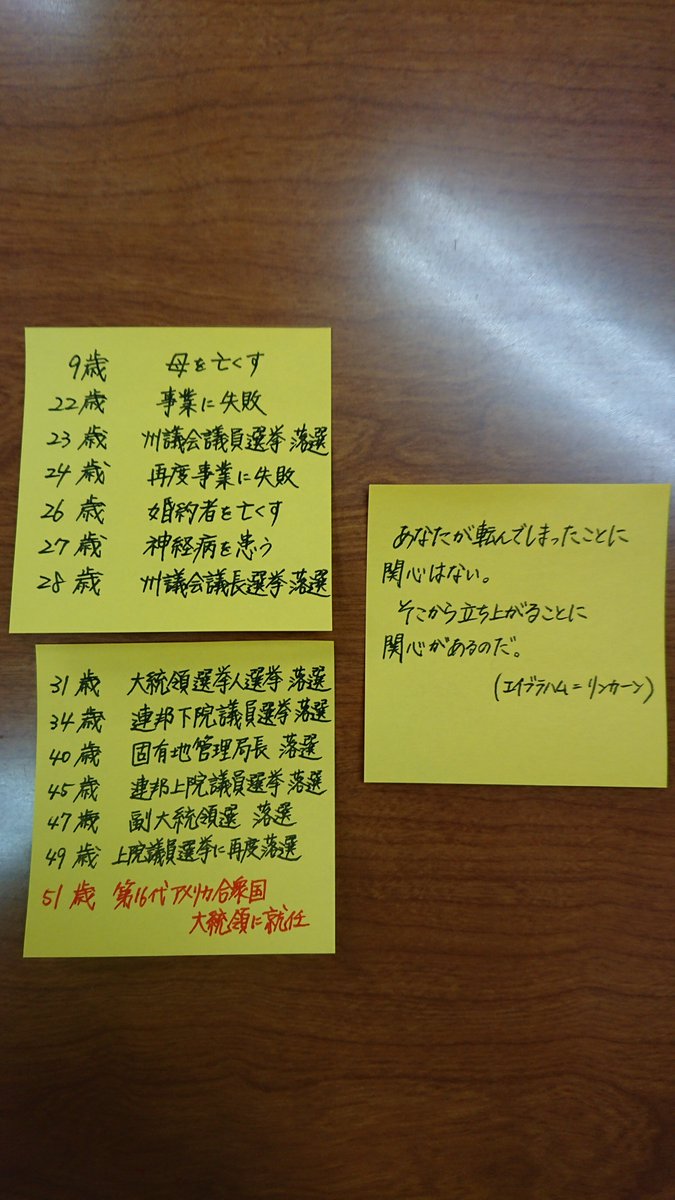 9歳 母を亡くす
22歳 事業に失敗
23歳 州議会議員選挙落選
24歳 再度事業に失敗
26歳 婚約者を亡くす
27歳 神経病を患う
28歳 州議会議長選挙落選
31歳 大統領選挙人選挙落選
34歳 連邦下院議員選挙落選
40歳 固有地管理局長 落選
45歳 連邦上院議員選挙落選
47歳 副大統領選 落選
49歳 上院議員選挙に再度落選
51歳 第16代アメリカ合衆国
大統領に就任
あなたが転んでしまったことに
関心はない。
そこから立ち上がることに
関心があるのだ。
(エイブラハム=リンカーン)